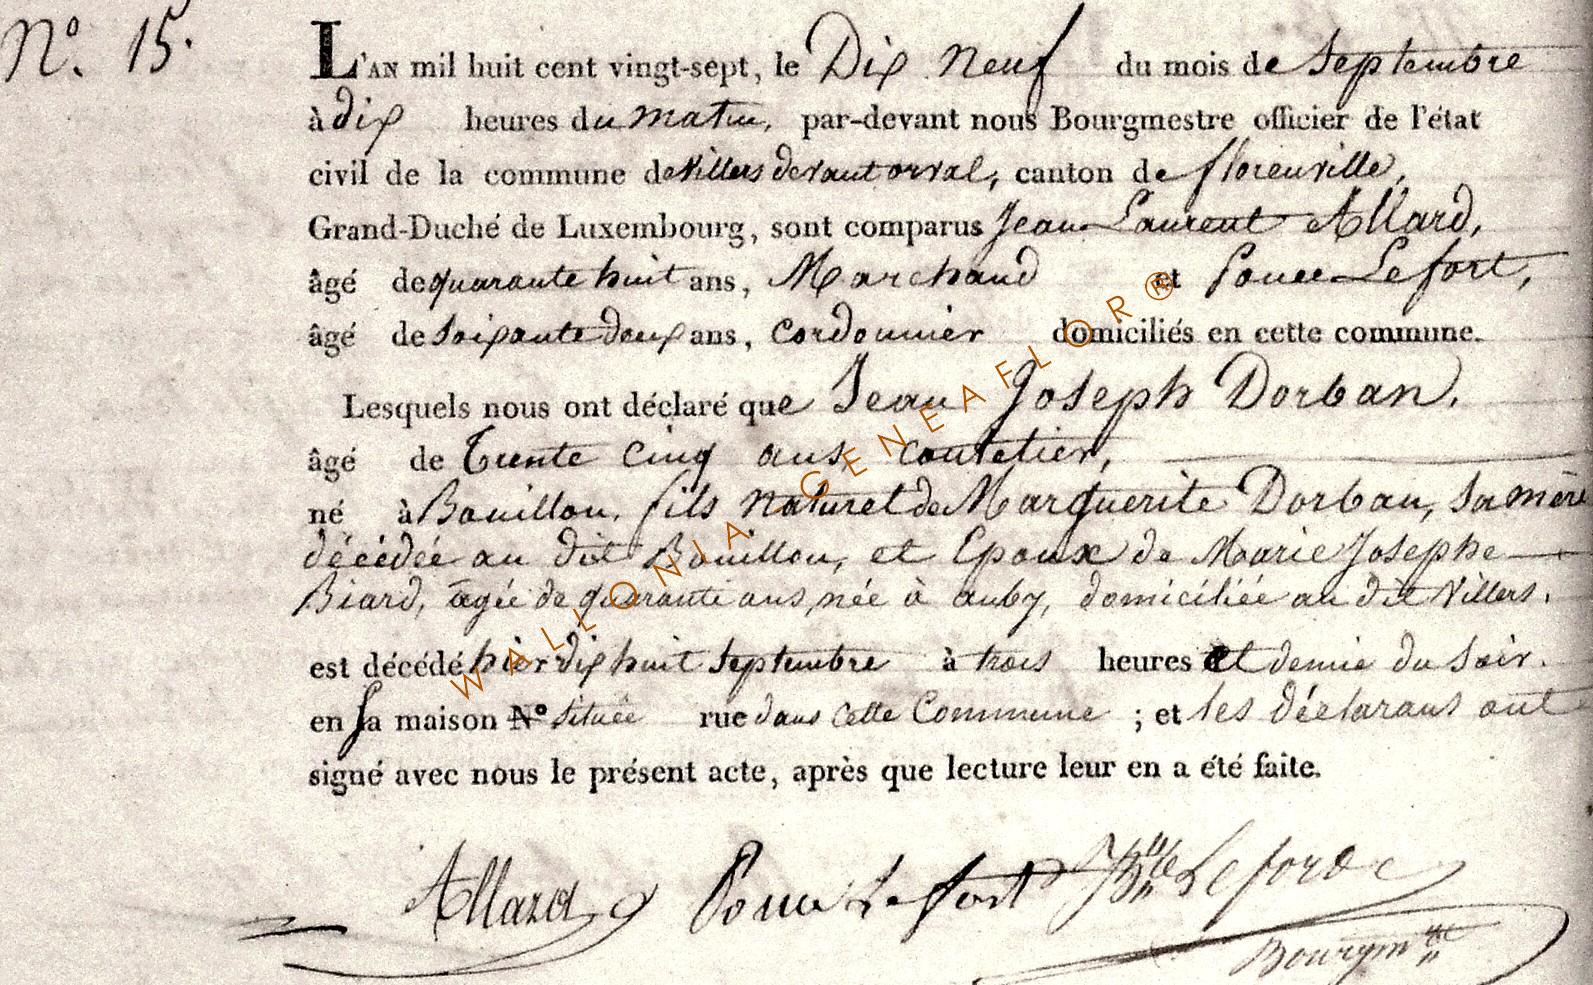 N.º 15.
L'AN mil huit cent vingt-sept, le Dix neuf du mois de Septembre
à dix heures du matin, par-devant nous Bourgmestre officier de l'état
civil de la commune de Villers devant orval, canton de florenville,
Grand-Duché de Luxembourg, sont comparus Jean Laurent Allard,
âgé de quarante huit ans, Marchand et Ponce Lefort,
âgé de Soixante deux ans, Cordonnier domiciliés en cette commune.
Lesquels nous ont déclaré que Jean Joseph Dorban,
âgé de Trente cinq ans, coutelier,
né à Bouillon, fils naturel de Marguerite Dorban, sa mère
décédée au dit Bouillon, et Epoux de Marie Josephe
Biard, agée de quarante ans, née à auby, domiciliée au dit Villers.
est décédé hier dix huit septembre à trois heures et demie du Soir.
en sa maison Nº située rue dans cette Commune ; et les déclarans ont
signé avec nous le présent acte, après que lecture leur en a été faite.
Allard Ponce Lefort JBte Lefort
Bourgmtre
WALLONIA GENEAFLOR ®